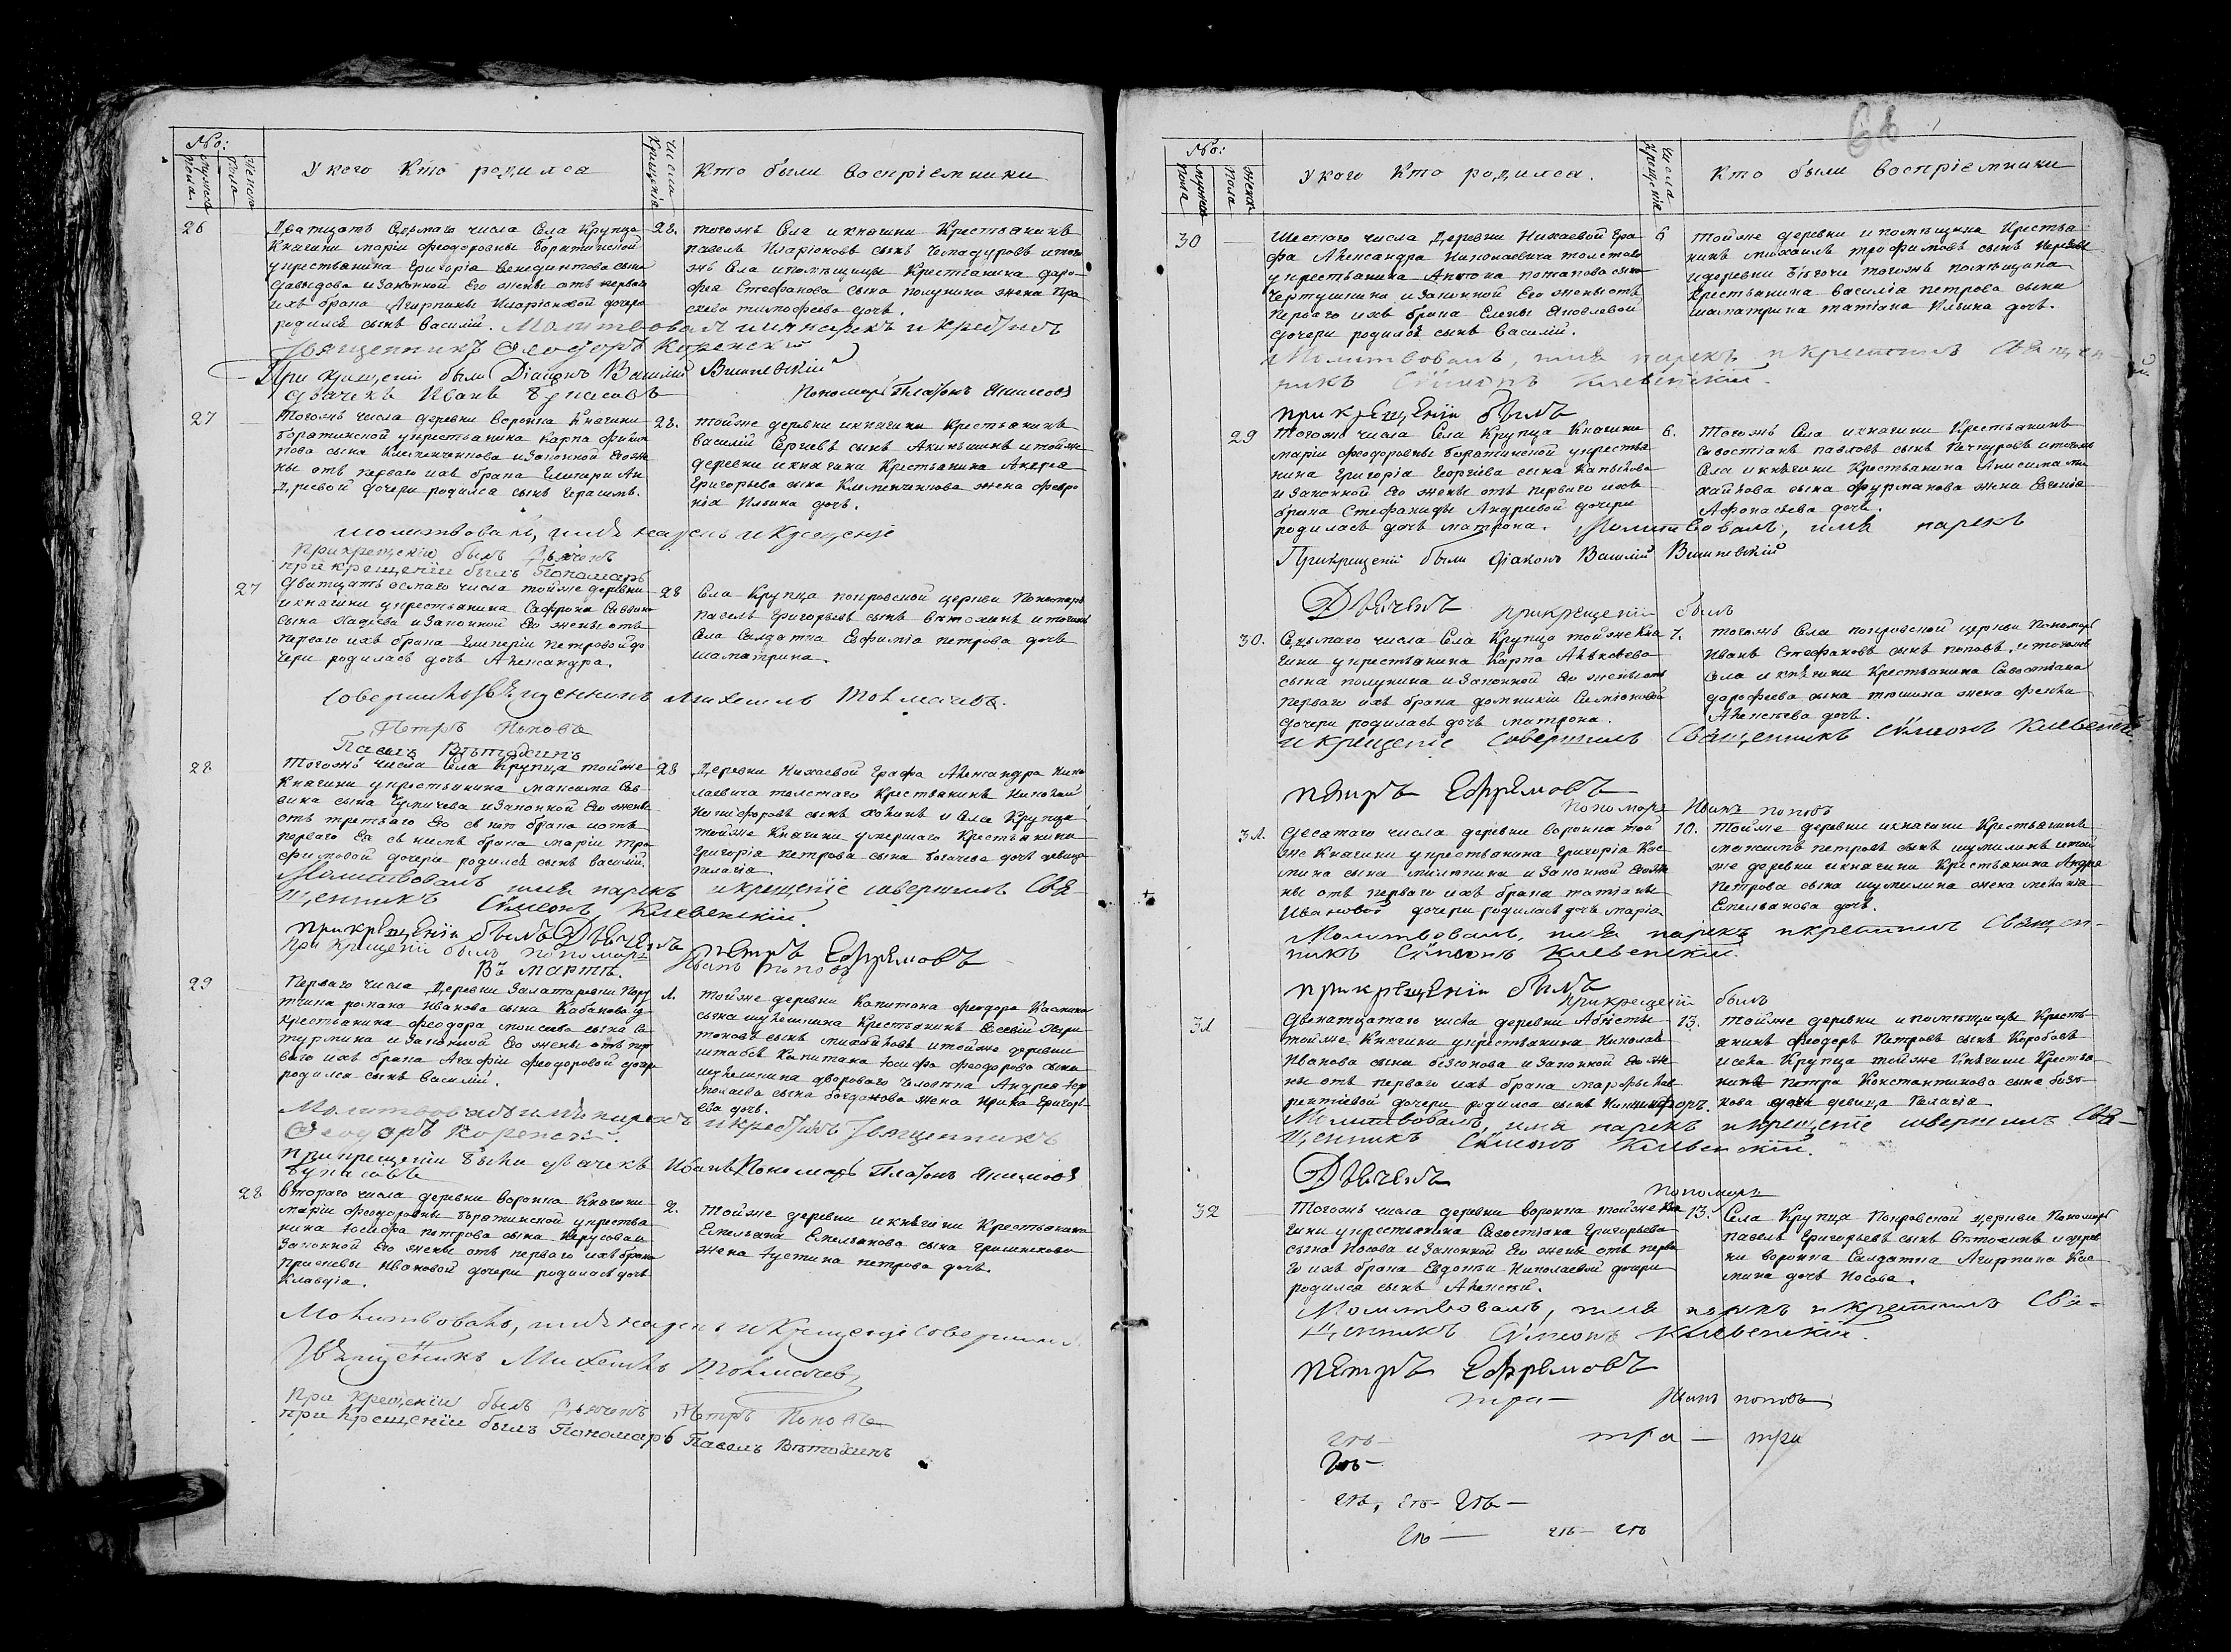 №:
мужеска пола
женска пола
У кого Кто родился
числа крещенія
Кто были воспріемники
26
Дватцать седьмаго числа Села Крупца
Княгини маріи феодоровны Борятинской
у крестьянина Григорія Бенедиктова сына
Давыдова и законной Его жены отъ перваго
ихъ брака Агирпины Иларіоновой дочери
родился сынъ Василій.
28.
тогожъ Села и княгини Крестьянинъ
павелъ Иларіоновъ сынъ и того
жъ Села и помѣщицы Крестьянина доро-
фея Стефанова сына полунина жена Пра
сковья тимофеева дочь.
Молитвовалъ имя нарекъ и крестилъ
Священникъ Феодоръ Коренскій
При крещеніи были Діаконъ Василій Вишневскій
Дьячекъ Иванъ Булгаковъ
Пономарь Платонъ Анисимовъ
27
Тогожъ числа деревни воронка Княгини
Борятинской у крестьянина Карпа филип
пова сына Клименчикова и законной Его же
ны отъ перваго ихъ брака Гликеріи Ан
дреевой дочери родился сынъ Герасимъ.
28.
тойже деревни и княгини Крестьянинъ
василій Сергеевъ сынъ Акиньшинъ и тойже
деревни и княгини Крестьянина Андрея
Григорьева сына Клименчикова жена февро
нія Ильина дочь.
молитвовалъ, имя нареклъ и крещеніе
при крещеніи былъ дьячекъ
при крещеніи былъ Пономарь
27
Дватцать осмаго числа тойже деревни
и княгини у крестьянина Сафрона Саввина
сына Хадеева и законной Его жены отъ
перваго ихъ брака Гликеріи петровой до
чери родилась дочь Александра.
28
Села Крупца покровской церкви Пономарь
павелъ Григорьевъ сынъ Ветохинъ и тогожъ
Села Салдатка Евфимія петрова дочь
шаматрина.
совершилъ Священникъ Михаилъ Толмачевъ.
Петръ Поповъ
Павелъ Ветохинъ
28
Тогожъ числа Села Крупца тойже
Княгини у крестьянина максима Сав-
вина сына и законной Его жены
отъ третьяго Его съ нею брака и отъ
перваго Ея съ нимъ брака маріи тро
фимовой дочери родился сынъ василій
28
Деревни Нихаевой Графа Александра Нико
лаевича толстаго Крестьянинъ Николай
Никифоровъ сынъ и Села Крупца
тойже Княгини умершаго Крестьянина
Григорія петрова сына богачева дочь девица
пелагія.
Молитвовалъ имя нарекъ и крещеніе совершилъ Свя-
щенникъ Сѵмеонъ Киевскій
при крещеніи былъ Дьячекъ Петръ Ефремовъ
При крещеніи былъ пономарь Иванъ поповъ
Въ мартѣ.
29
Перваго числа Деревни Залатаревки Пору
тчика романа иванова сына Кабанова у
крестьянина феодора моисеева сына Са
турмина и законной Его жены отъ пер
ваго ихъ брака Агафіи феодоровой дочери
родился сынъ василій.
1.
тойже деревни Капитана феодора Касмина
сына щукина Крестьянинъ Евсевій Хари
тоновъ сынъ и тойже деревни
штабсъ Капитана Іосифа феодорова сына
щукина двороваго человека Андрея Ер
молаева сына богданова жена Ирина Григорь
ева дочь.
Молитвовалъ имя нарекъ и крестилъ Священникъ
Феодоръ Коренскій.
При крещеніи были дьячекъ Иванъ Пономарь Платонъ Анисимовъ
Булгаковъ
28
втораго числа деревни воронка Княгини
маріи феодоровны Борятинской у крестья
нина Іосифа петрова сына Нерусова и
законной Его жены отъ перваго ихъ брака
Прасковьи Ивановой дочери родилась дочь
Клавдія.
2.
тойже деревни и княгини Крестьянина
Емельяна Емельянова сына Гришенкова
жена Іустина петрова дочь.
Молитвовалъ, имя нареклъ и крещеніе совершилъ
Священникъ Михаилъ Толмачевъ
при крещеніи былъ дьячекъ Петръ Поповъ
при крещеніи былъ Пономарь Павелъ Ветохинъ
68
№:
мужеска пола
женска пола
У кого Кто родился.
числа крещенія
Кто были воспріемники
30
Шестаго числа Деревни Нихаевой Гра
фа Александра Николаевича толстаго
у крестьянина Антона потапова сына
Чертушкина и законной Его жены отъ
перваго ихъ брака Елены Яковлевой
дочери родился сынъ василій.
6
тойже деревни и помѣщика Крестья
нинъ михаилъ трофимовъ сынъ
и деревни бѣгочи тогожъ помѣщика
Крестьянина василія петрова сына
шаматрина татіана Ильина дочь.
Молитвовалъ, имя нарекъ и крестилъ Священ
никъ Сѵмеонъ Киевскій.
при крещеніи былъ
29
Тогожъ числа Села Крупца Княгини
маріи феодоровны Борятинской у крестья
нина Григорія Георгіева сына Капылова
и законной Его жены отъ перваго ихъ
брака Стефаниды Андреевой дочери
родилась дочь матрона.
6.
Тогожъ Села и княгини Крестьянинъ
Савостіанъ павловъ сынъ Качуровъ и тогожъ
Села и княгини Крестьянина Анисима ми
хайлова сына фурманова жена Евгенія
Афонасьева дочь.
Молитвовалъ, имя нарекъ
При крещеніи были Діаконъ Василій Вишневскій
Дьячекъ при крещеніи былъ
30.
Седьмаго числа Села Крупца тойже Кня
гини у крестьянина Карпа Алексеева
сына полунина и законной Его жены отъ
перваго ихъ брака домникіи Симіоновой
дочери родилась дочь матрона.
7.
тогожъ Села покровской церкви Пономарь
Иванъ Стефановъ сынъ поповъ, и тогожъ
Села и княгини Крестьянина Савостіана
дорофеева сына тюшина жена фекла
Алексеева дочь.
и крещеніе совершилъ Священникъ Сѵмеонъ Киевскій
петръ Ефремовъ
пономарь Иванъ поповъ
31.
Десятаго числа деревни воронка той
же Княгини у крестьянина Григорія Кос
мина сына милюкина и законной Его же
ны отъ перваго ихъ брака татіаны
Ивановой дочери родилась дочь марія.
10.
тойже деревни и княгини Крестьянинъ
максимъ петровъ сынъ шумилинъ и той
же деревни и княгини Крестьянина Андрея
петрова сына шумилина жена меланія
Емельянова дочь.
Молитвовалъ, имя нарекъ и крестилъ Священ-
никъ Сѵмеонъ Киевскій.
при крещеніи былъ
при крещеніи былъ
31
Двенатцатаго числа деревни
тойже Княгини у крестьянина Николая
Иванова сына бизюкова и законной Его же
ны отъ перваго ихъ брака марфы Лав
рентіевой дочери родился сынъ Никифоръ.
13.
тойже деревни и помѣщицы Кресть
янинъ феодоръ Петровъ сынъ Коробовъ
и села Крупца тойже Княгини Крестья
нина петра Константинова сына бизю-
кова дочь девица Пелагія
Молитвовалъ, имя нарекъ и крещеніе совершилъ Свя-
щенникъ Сѵмеонъ Киевскій.
Дьячекъ
пономарь
32
Тогожъ числа деревни воронка тойже Кня
гини у крестьянина Савостіана Григорьева
сына Носова и законной Его жены отъ перва
го ихъ брака Евдокіи Николаевой дочери
родился сынъ Алексей.
13.
Села Крупца Покровской церкви Пономарь
павелъ Григорьевъ сынъ Ветохинъ и дерев
ни воронка Салдатка Агирпина Кос
мина дочь Носова.
Молитвовалъ, имя нарекъ и крестилъ Свя-
щенникъ Сѵмеонъ Киевскій.
петръ Ефремовъ
Иванъ поповъ